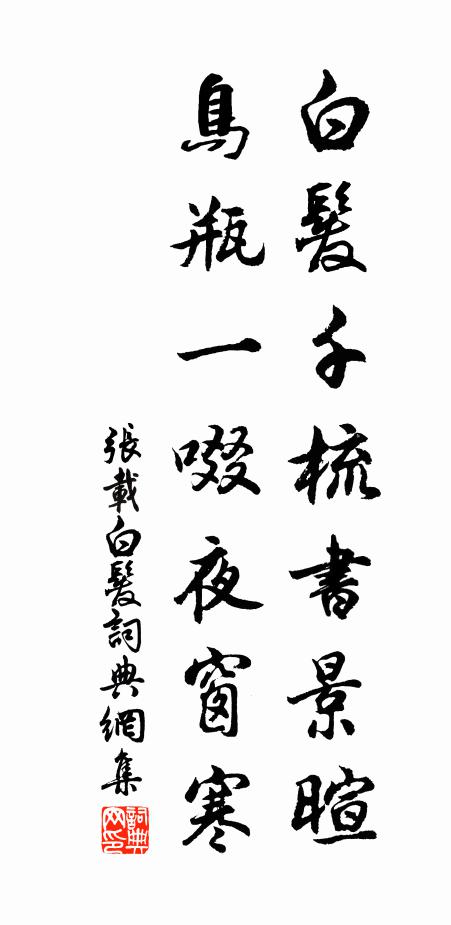 白髮千梳書景暄
鳥瓶一啜夜窗寒
張載白髮詞典網集
詞典网印